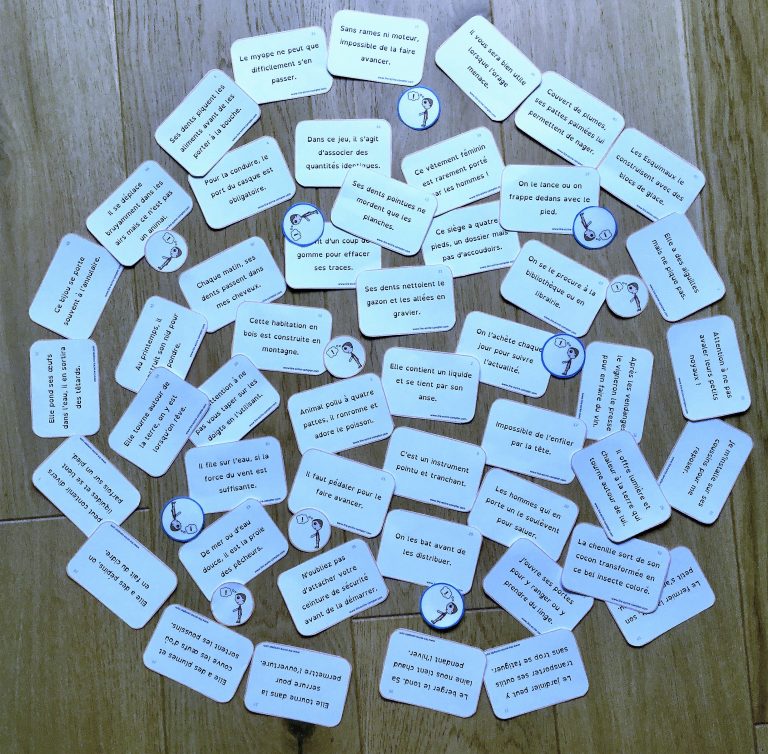 Sans rames ni moteur,
impossible de la faire
avancer.
Le myope ne peut que
difficilement s'en
passer.
Il vous sera bien utile
lorsque l'orage
menace.
Couvert de plumes,
ses pattes palmées lui
permettent de nager.
Les Esquimaux le
construisent avec des
blocs de glace.
Ses dents piquent les
aliments avant de les
porter à la bouche.
Dans ce jeu, il s'agit
d'associer des
quantités identiques.
Ce vêtement féminin
est rarement porté
par les hommes !
On le lance ou on
frappe dedans avec le
pied.
Pour la conduire, le
port du casque est
obligatoire.
Ses dents pointues ne
mordent que les
planches.
Il se déplace
bruyamment dans les
airs mais ce n'est pas
un animal.
d'un coup de
gomme pour effacer
ses traces.
Ce siège a quatre
pieds, un dossier mais
pas d'accoudoirs.
Elle a des aiguilles
mais ne pique pas.
Ce bijou se porte
souvent à l'annulaire.
Chaque matin, ses
dents passent dans
mes cheveux.
Ses dents nettoient le
gazon et les allées en
gravier.
On se le procure à la
bibliothèque ou en
librairie.
Au printemps, il
son nid pour
pondre.
Cette habitation en
bois est construite en
montagne.
On l'achète chaque
jour pour suivre
l'actualité.
Attention à ne pas
avaler leurs petits
noyaux !
Elle pond ses œufs
dans l'eau, il en sortira
des têtards.
Elle tourne autour de
la terre, on y est
lorsqu'on rêve.
Attention à ne
pas vous taper sur les
doigts en l'utilisant.
Elle contient un liquide
et se tient par son
anse.
Après les vendanges,
le vigneron le presse
pour en faire du vin.
Animal poilu à quatre
pattes, il ronronne et
adore le poisson.
Impossible de l'enfiler
par la tête.
Il offre lumière et
chaleur à la terre qui
tourne autour de lui.
Je m'installe sur ses
coussins pour me
reposer.
Il file sur l'eau, si la
force du vent est
suffisante.
Il faut pédaler pour le
faire avancer.
C'est un instrument
pointu et tranchant.
Les hommes qui en
porte un le soulèvent
pour saluer.
peut contenir divers
liquides et se tient
parfois sur un pied.
De mer ou d'eau
douce, il est la proie
des pêcheurs.
On les bat avant de
les distribuer.
La chenille sort de son
cocon transformée en
ce bel insecte coloré.
Elle a des pépins, on
en fait du cidre.
N'oubliez pas
d'attacher votre
ceinture de sécurité
avant de la démarrer.
J'ouvre ses portes
pour y ranger ou y
prendre du linge.
Le fermier
petit
son
Elle a des plumes et
couve les œufs d'où
sortent les poussins.
Elle tourne dans la
serrure pour
permettre l'ouverture.
Le berger le tond. Sa
laine nous tient chaud
pendant l'hiver.
Le jardinier peut y
transporter ses outils
sans trop se fatiguer.